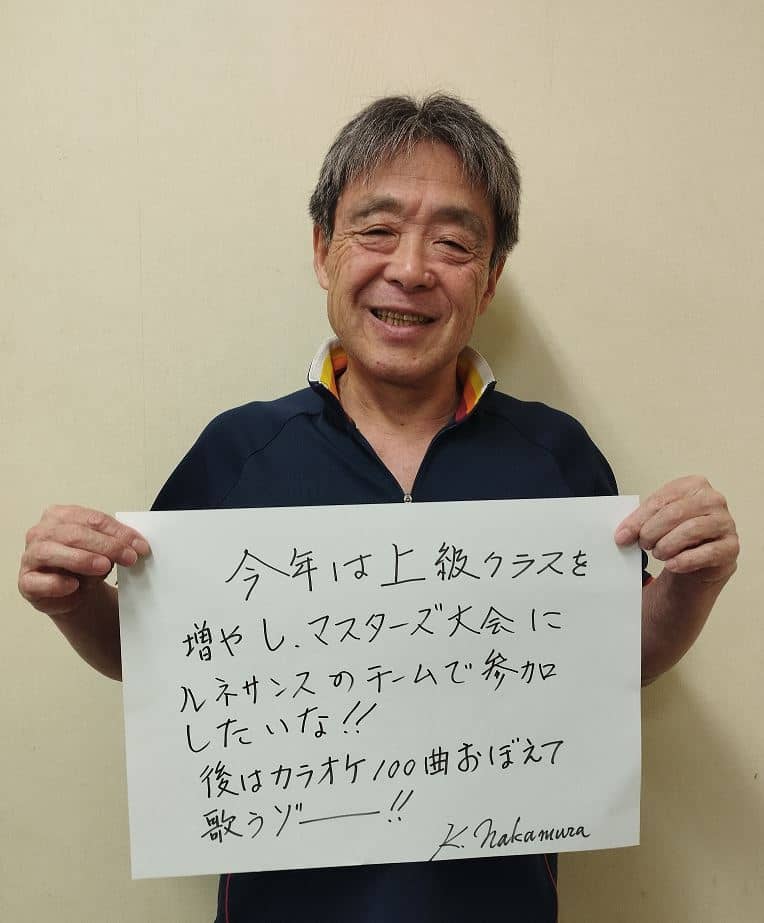 今年は上級クラスを
増やし、マスターズ大会に
ルネサンスのチームで参加
したいな!!
後はカラオケ100曲おぼえて
歌うゾー!!
K. Nakamura